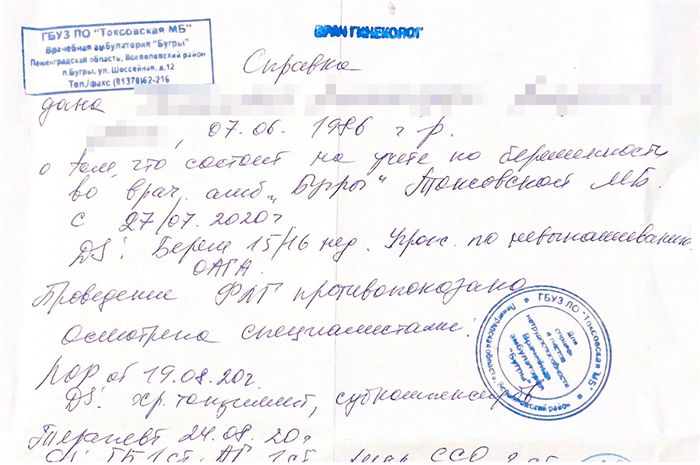 ГБУЗ ЛО "Токсовская МБ"
Врачебная амбулатория "Бугры"
Ленинградская область, Всеволожский район
п.Бугры, ул. Шоссейная, д.12
Тел./факс (81370)62-216
ВРАЧ ГИНЕКОЛОГ
Справка
дана
, 07.06. 1986 г р.
о том, что состоит на учете по беременности
во врач. амб „Бугры" Токсовской МБ.
с 27/07. 2020г
DS: Берем 15/16 нед. Угрож. по невынашиванию.
ОАГА.
Проведение ФЛГ противопоказано
Осмотрена специалистами:
ЛОР от 19.08.20г.
DS: хр. тонзиллит, субкомпенсир.
Терапевт 24.08.20г
ГБУЗ ЛО "Токсовская МБ"
Ленинградская область, Всеволожский район
Для
справок
и листков
нетрудоспособности
Врачебная
амбулатория
"Бугры"